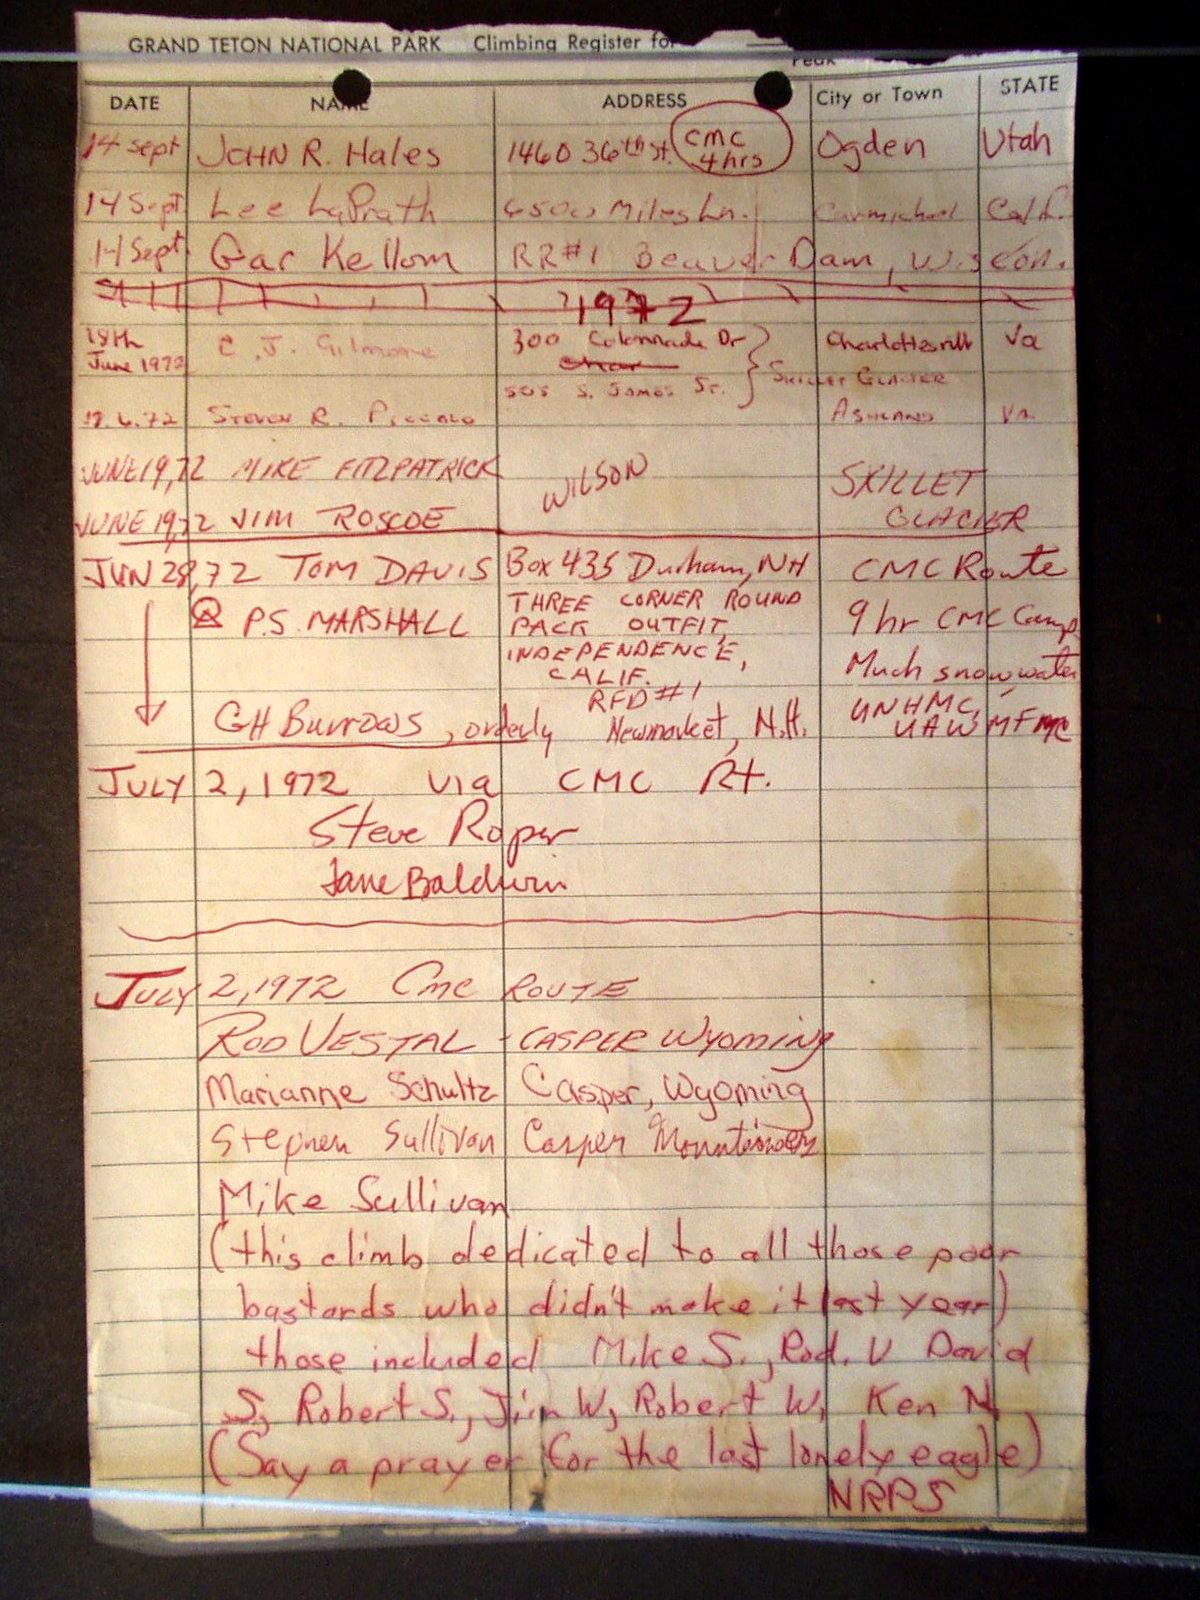 GRAND TETON NATIONAL PARK Climbing Register for
Peak
DATE NAME ADDRESS City or Town STATE
14 Sept JOHN R. Hales 1460 36th St. CMC 4hrs Ogden Utah
14 Sept Lee LaPrath 6500 Miles Ln. Carmichael Calif.
14 Sept Gar Kellom RR#1 Beaver Dam, Wiscon.
1972
18th June 1972 C. J. Gilmore 300 Colonnade Dr Charlottesvill Va
SKILLET GLACIER
505 S. James St.
STEVEN R. PICCOLO ASHLAND VA.
JUNE 19,72 MIKE FITZPATRICK WILSON SKILLET
JUNE 19,72 JIM ROSCOE GLACIER
JUN 28,72 TOM DAVIS Box 435 Durham, NH CMC Route
P.S. MARSHALL THREE CORNER ROUND 9 hr CMC Camp
PACK OUTFIT,
INDEPENDENCE, Much snow, water
CALIF.
RFD #1
GH Burrows, orderly Newmarket, N.H. UNHMC,
UAW MFMC
JULY 2, 1972 via CMC Rt.
Steve Roper
Jane Baldwin
JULY 2, 1972 CMC ROUTE
ROD VESTAL - CASPER WYOMING
Marianne Schultz Casper, Wyoming
Stephen Sullivan Casper Mountaineers
Mike Sullivan
(this climb dedicated to all those poor
bastards who didn't make it last year)
those included Mike S., Rod. V David
S, Robert S., Jim W, Robert W, Ken N.
(Say a prayer for the last lonely eagle)
NRPS